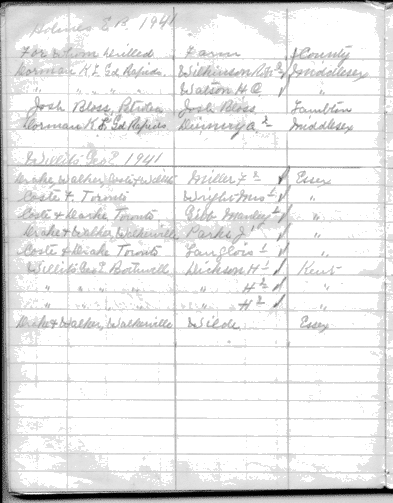 Holmes E. B. 1941
For whom Drilled Farm County
Dorman K. L. Gd Rapids. Wilkinson R. 2 ✓ Middlesex
" " " Watson H. A. ✓ "
Josh Bloss, Petrolia Josh Bloss Lambton
Dorman K. L. Gd Rapids Dinney A. 2 Middlesex
Willits Geo. L. 1941
Drake, Walker, Coste & Willits Miller F 2 ✓ Essex
Coste F. Toronto Wright Mrs 1 ✓ "
Coste & Drake Toronto, Gibb Manley 1 ✓ "
Drake & Walker Walkerville Parks J 15 ✓ "
Coste & Drake Toronto Langlois 1 ✓ "
Willits Geo. L. Bothwell Dickson H 1 ✓ Kent
" " " " " H 2 ✓ "
" " " " H 2 ✓ "
Drake & Walker, Walkerville Wilde Essex